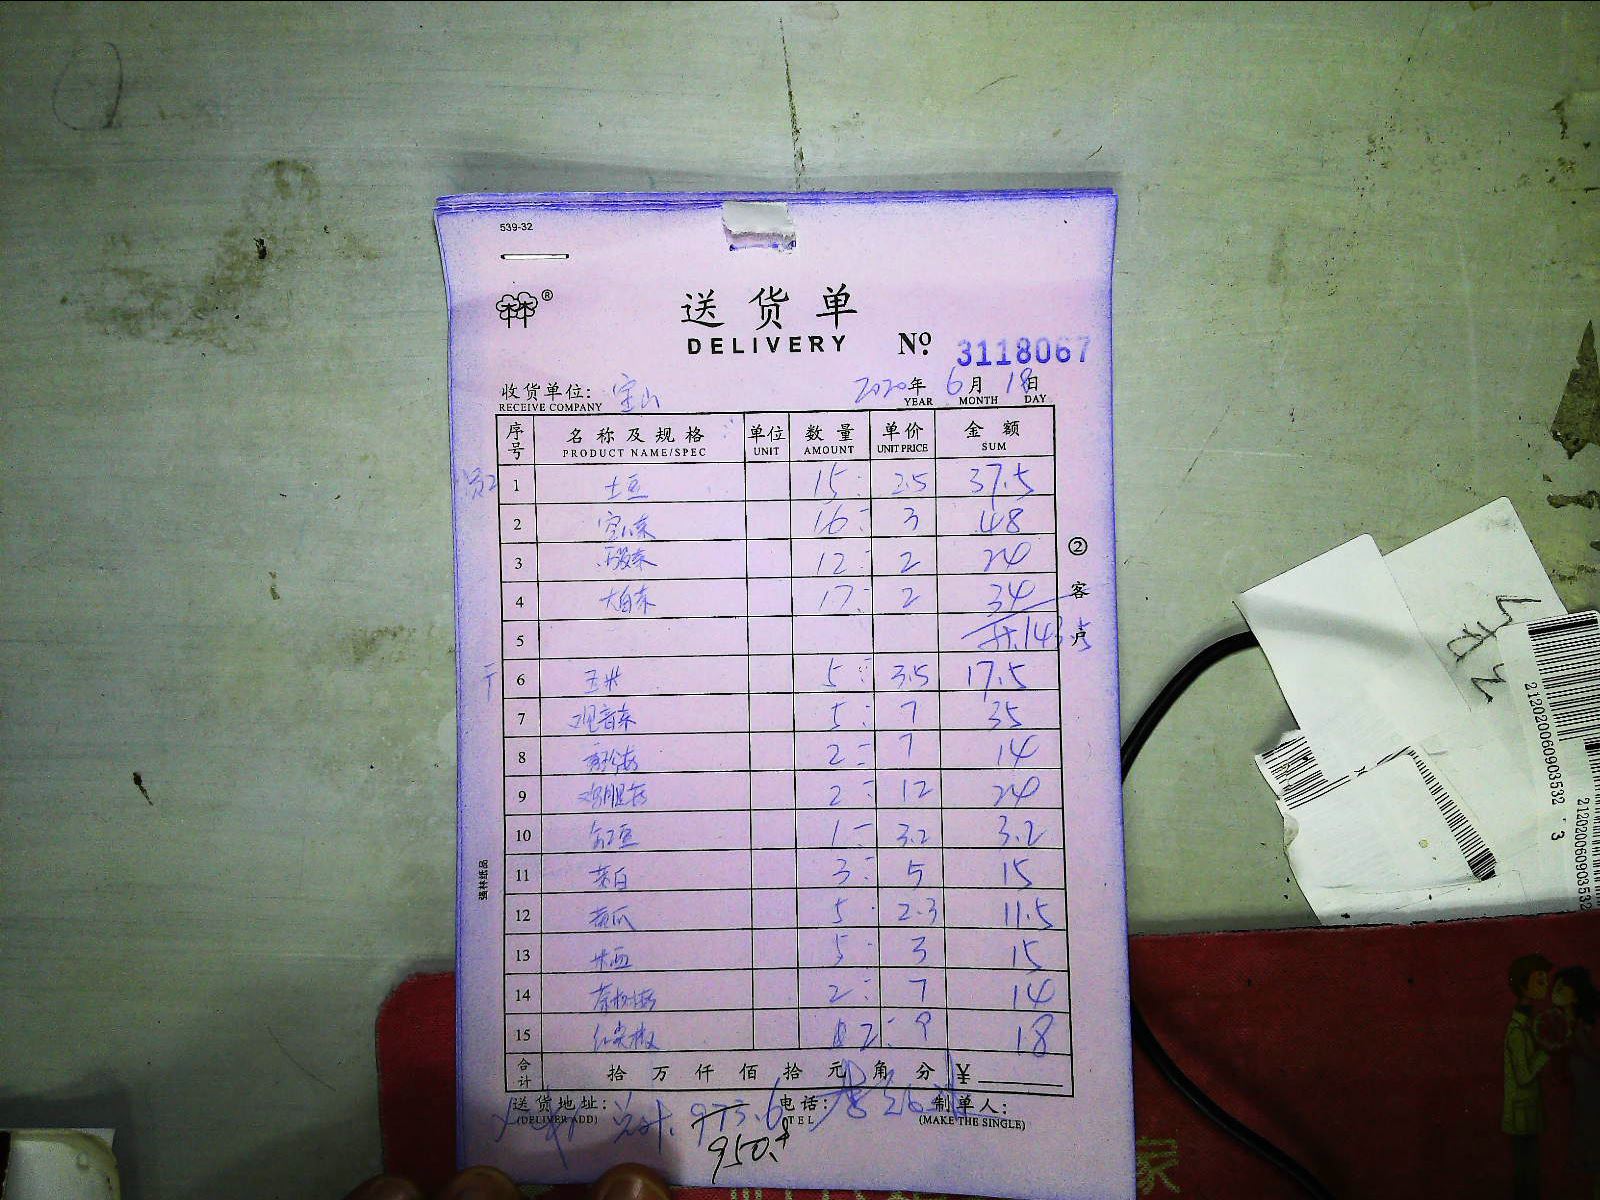 539-32
送货单
DELIVERY
№ 3118067
收货单位: 宝山 2020年 6月 18日
RECEIVE COMPANY YEAR MONTH DAY
序号 名称及规格 单位 数量 单价 金额
PRODUCT NAME/SPEC UNIT AMOUNT UNIT PRICE SUM
1 土豆 15 2.5 37.5
2 16 3 48
3 12 2 24
4 大白菜 17 2 34
5 共.143.5
6 玉米 5 3.5 17.5
7 观音菜 5 7 35
8 2 7 14
9 鸡腿菇 2 12 24
10 豇豆 1 3.2 3.2
11 茭白 3 5 15
12 黄瓜 5 2.3 11.5
13 5 3 15
14 2 7 14
15 红尖椒 2 9 18
合计 拾 万 仟 佰 拾 元 角 分 ¥
送货地址: 电话: 制单人:
(DELIVER ADD) TEL (MAKE THE SINGLE)
总计. 973.6
950.8
② 客户
强林纸品
21202060903532 3
21202060903532
家